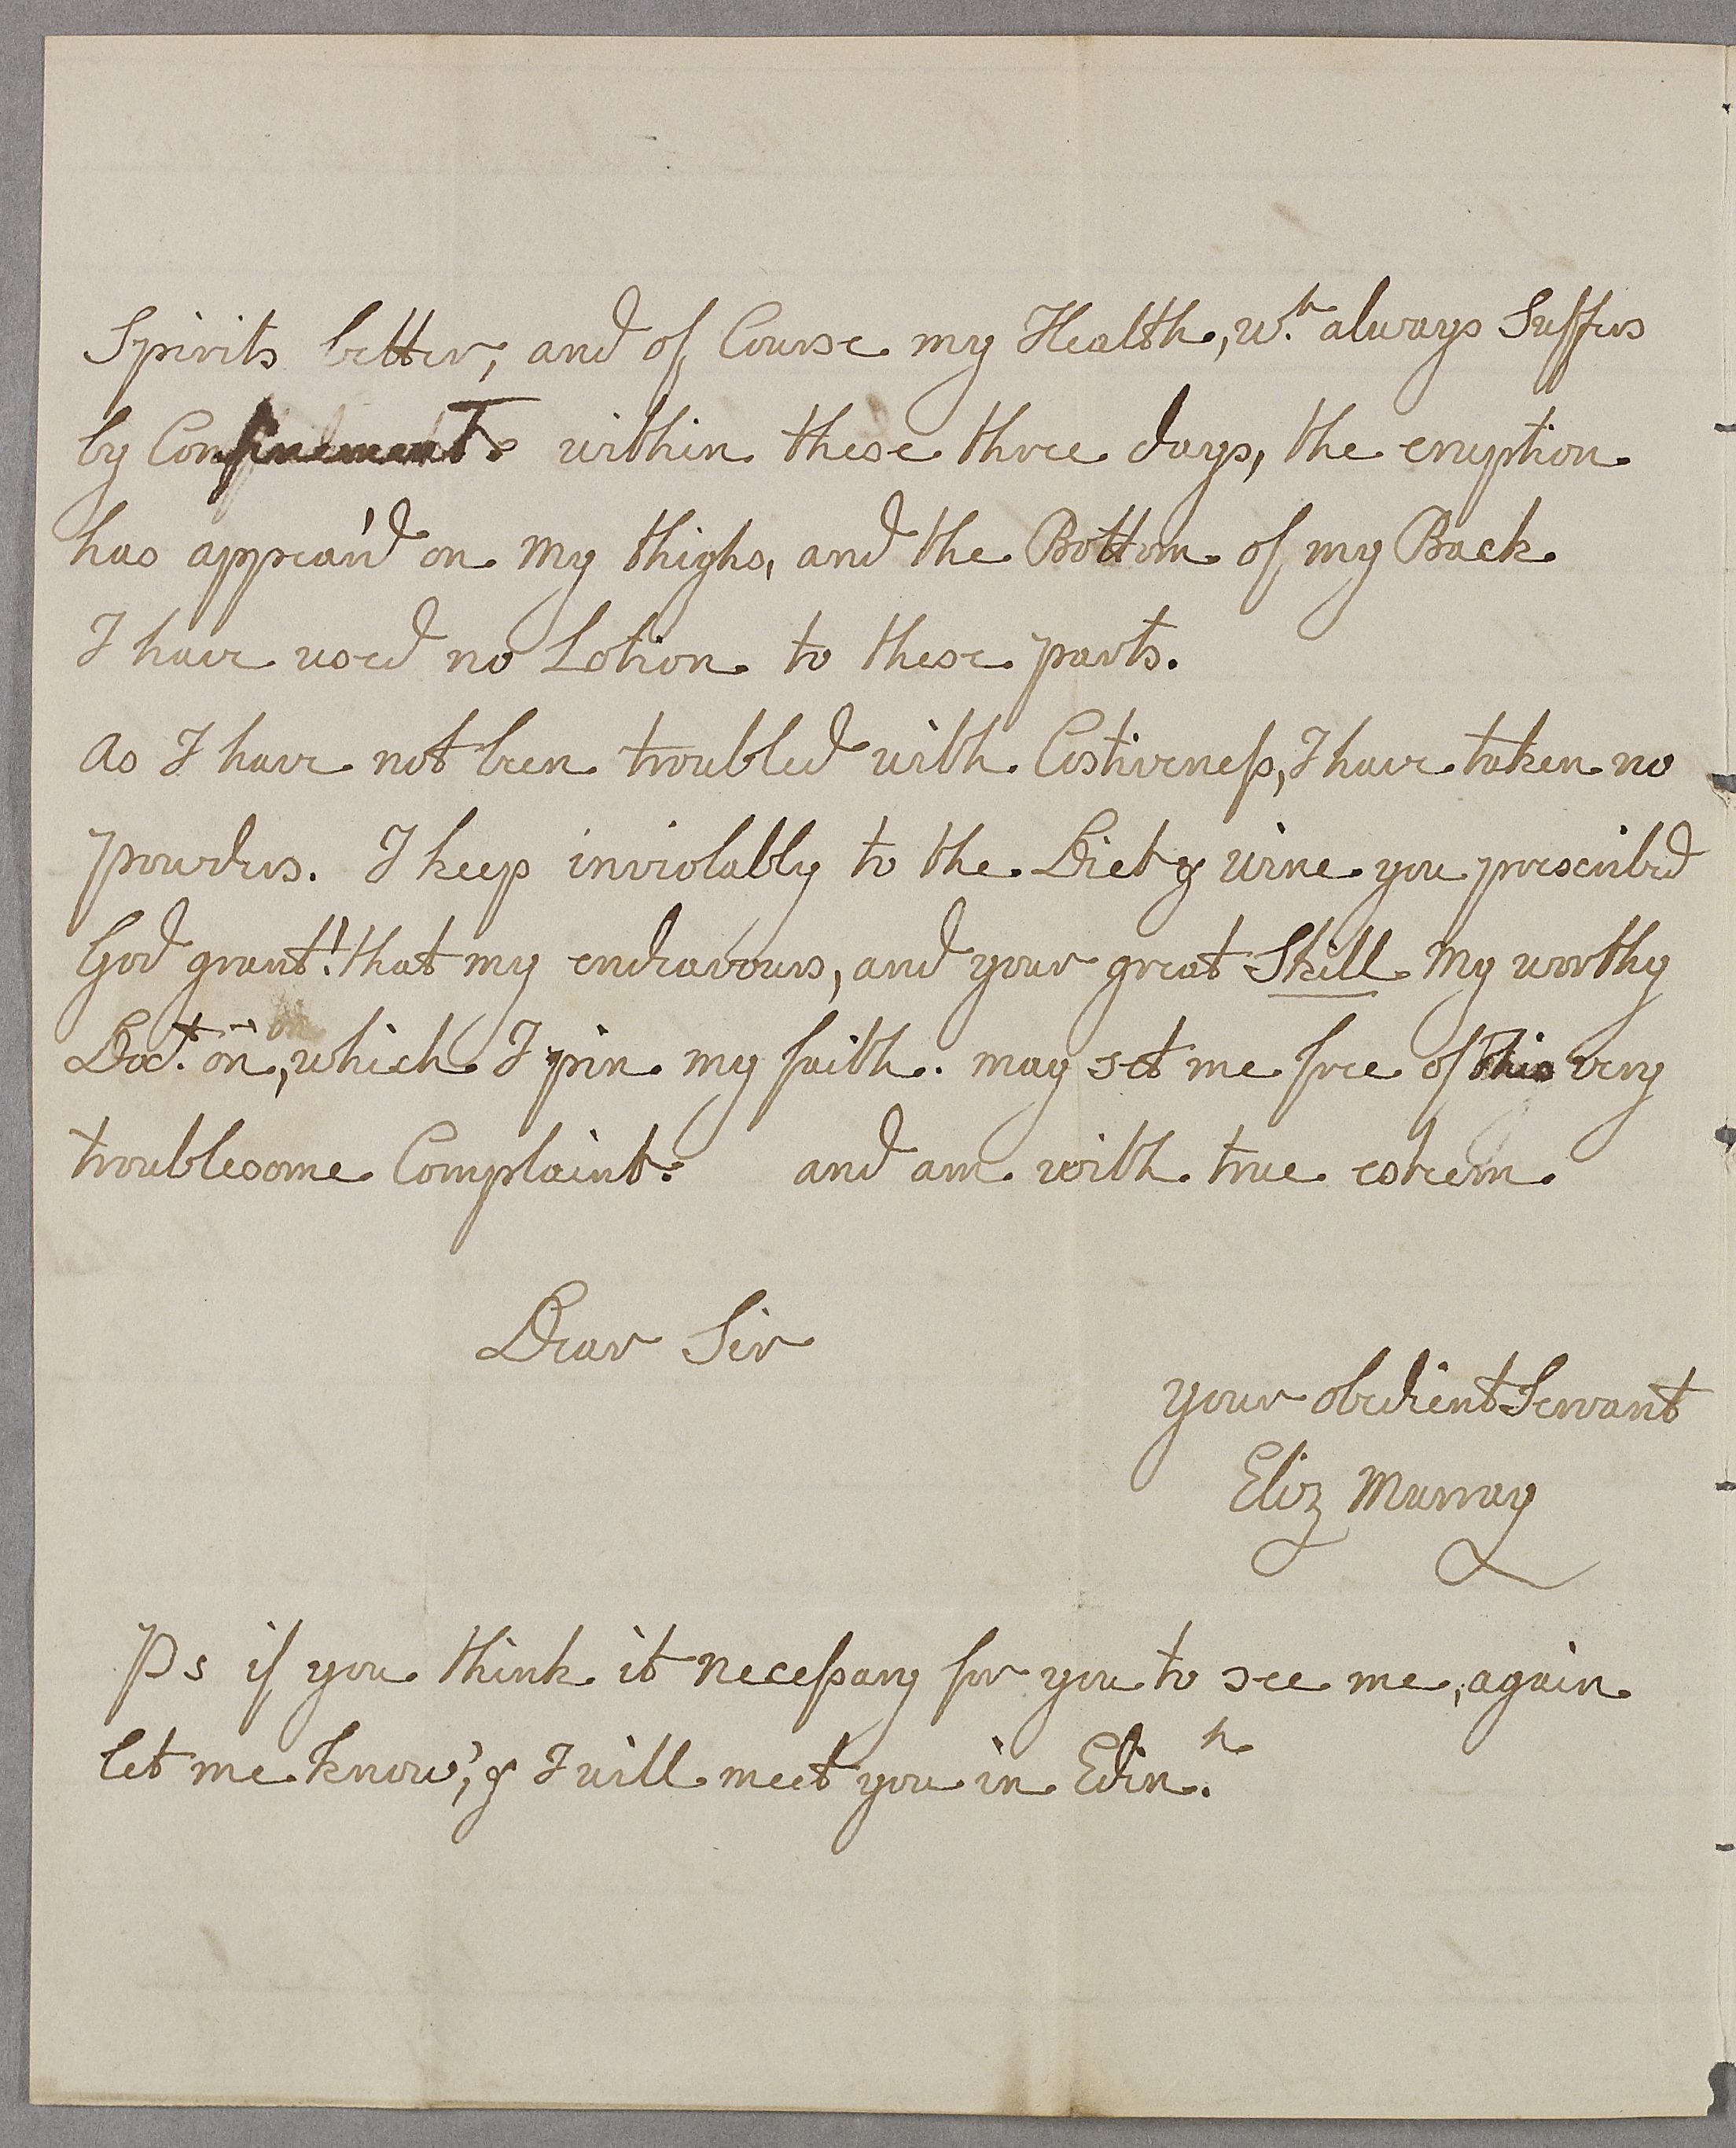 Spirits better, and of Course my Health, wh. always Suffers
by Confinement. within these three days, the eruption
has appear'd on my thighs, and the Bottom of my Back
I have used no Lotion to these parts.
as I have not been troubled with Costiveness, I have taken no
powders. I keep inviolably to the Diet & wine you prescribed
God grant! that my endeavours, and your great Skill my worthy
Doct. on, which I pin my faith. may set me free of this very
troublesome Complaint. and am with true esteem
Dear Sir
your obedient Servant
Eliz Murray
Ps if you think it necessary for you to see me, again
let me know, & I will meet you in Edinh.